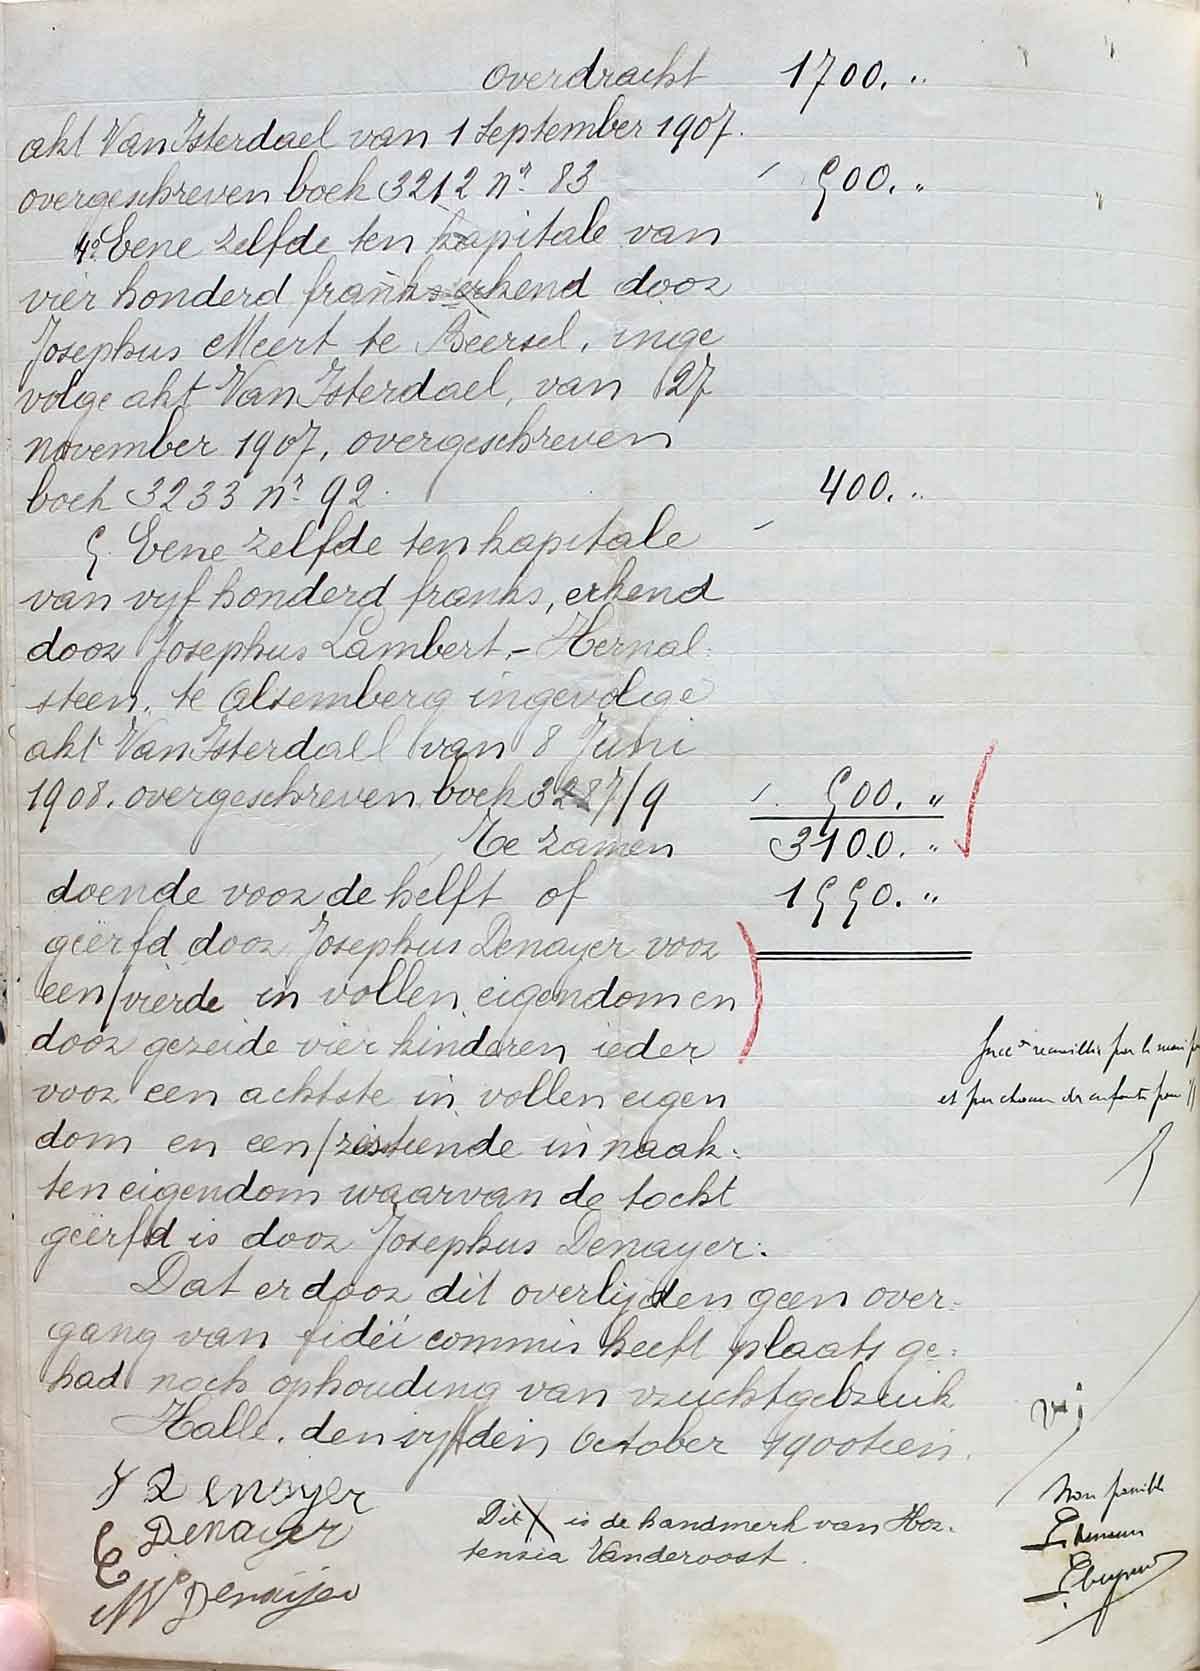 overdracht 1700. "
akt Van Isterdael van 1 september 1907.
overgeschreven boek 3212 nr 83 500. "
4° Eene zelfde ten kapitale van
vier honderd franks erkend door
Josephus Meert te Beersel, inge
volge akt Van Isterdael, van 27
november 1907, overgeschreven
boek 3233 nr 92. 400. "
5. Eene zelfde ten kapitale
van vyf honderd franks, erkend
door Josephus Lambert,- Hernal-
steen, te Alsemberg ingevolge
akt Van Isterdall van 8 Juni
1908. overgeschreven boek 3287/9 500. "
Te zamen 3100. "
doende voor de helft of 1550. "
geërfd door Josephus Denayer voor
een/vierde in vollen eigendom en
door gezeide vier kinderen ieder
voor een achtste in vollen eigen
dom en een/zestiende in naak:
ten eigendom waarvan de tocht
geërfd is door Josephus Denayer:
Dat er door dit overlijden geen over-
gang van fideï commis heeft plaats ge:
had noch ophouding van vruchtgebruik
Halle, den vyfden October 1900tien.
J Denayer
E Denayer
M Denaijer
Dit X is de handmerk van Hor-
tensia Vanderoost.
succon recueillie par le mari
et par chacun des enfants pour